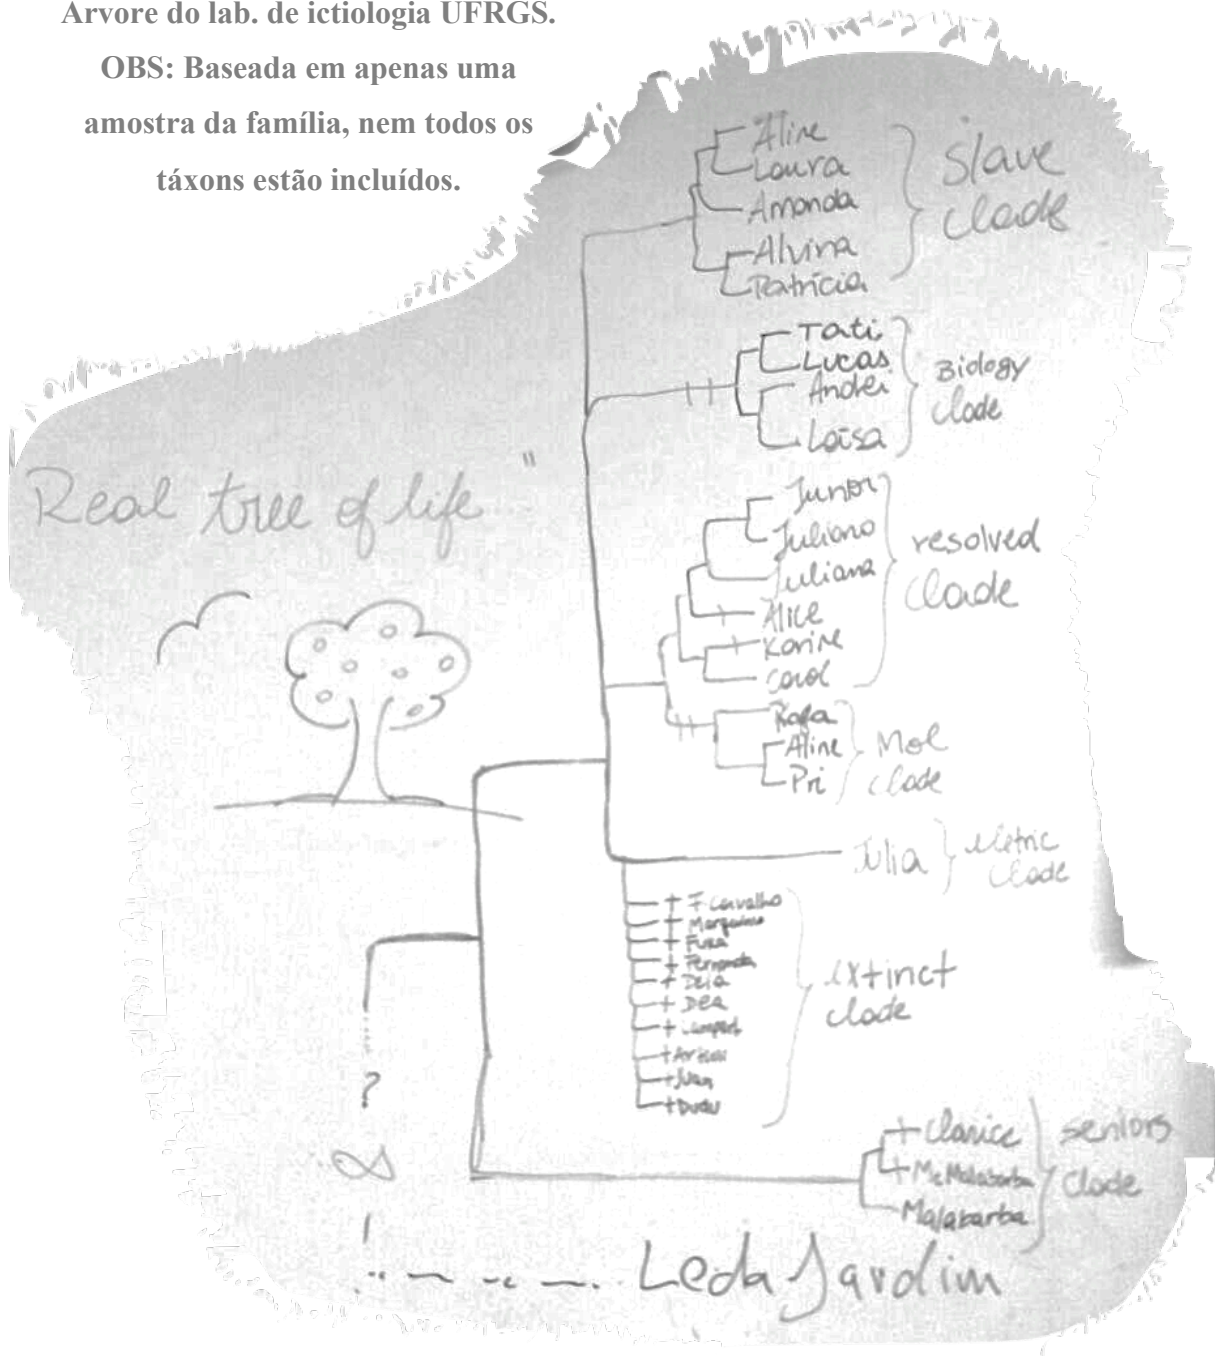 Arvore do lab. de ictiologia UFRGS.
OBS: Baseada em apenas uma
amostra da família, nem todos os
táxons estão incluídos.
Aline
Laura
Amanda
Alvina
Patrícia
Slave
Clade
Tati
Lucas
Andrei
Loisa
Biology
Clade
"Real tree of life"
Junior
Juliano
Juliana
Alice
Karine
Carol
resolved
Clade
Rafa
Aline
Pri
Mol
Clade
Julia
Metric
Clade
+ F Carvalho
+ Fuka
+ Fernanda
+ Deia
+ Dea
+ Juan
+ Dudu
extinct
clade
?
∞
+ Clarice
+ Mc Malabarba
Malabarba
seniors
Clade
Leda Jardim